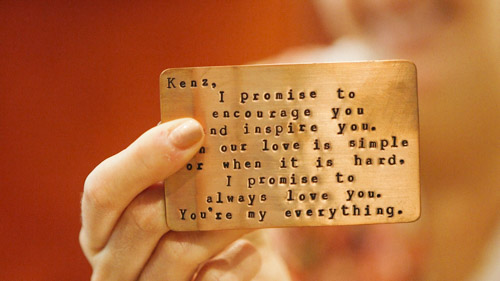 Kenz,
I promise to
encourage you
nd inspire you.
n our love is simple
or when it is hard,
I promise to
always love you.
You're my everything.